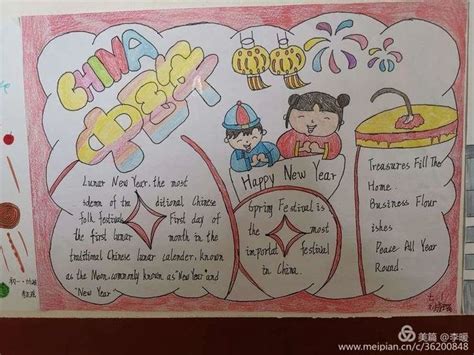 CHINA
中国年
Happy New Year
Lunar New Year, the most
sdemn of tra ditional Chinese
folk festivals First day of
the first lunar month in the
traditional Chinese lunar calender, known
as the Moon, commonly known as "New Year" and
"New Year
Spring Festival is
the most
importal festival
in China.
Treasures Fill The
Home.
Business Flour
ishes
Peace All Year
Round.
美篇 @李暖
www.meipian.cn/c/36200848